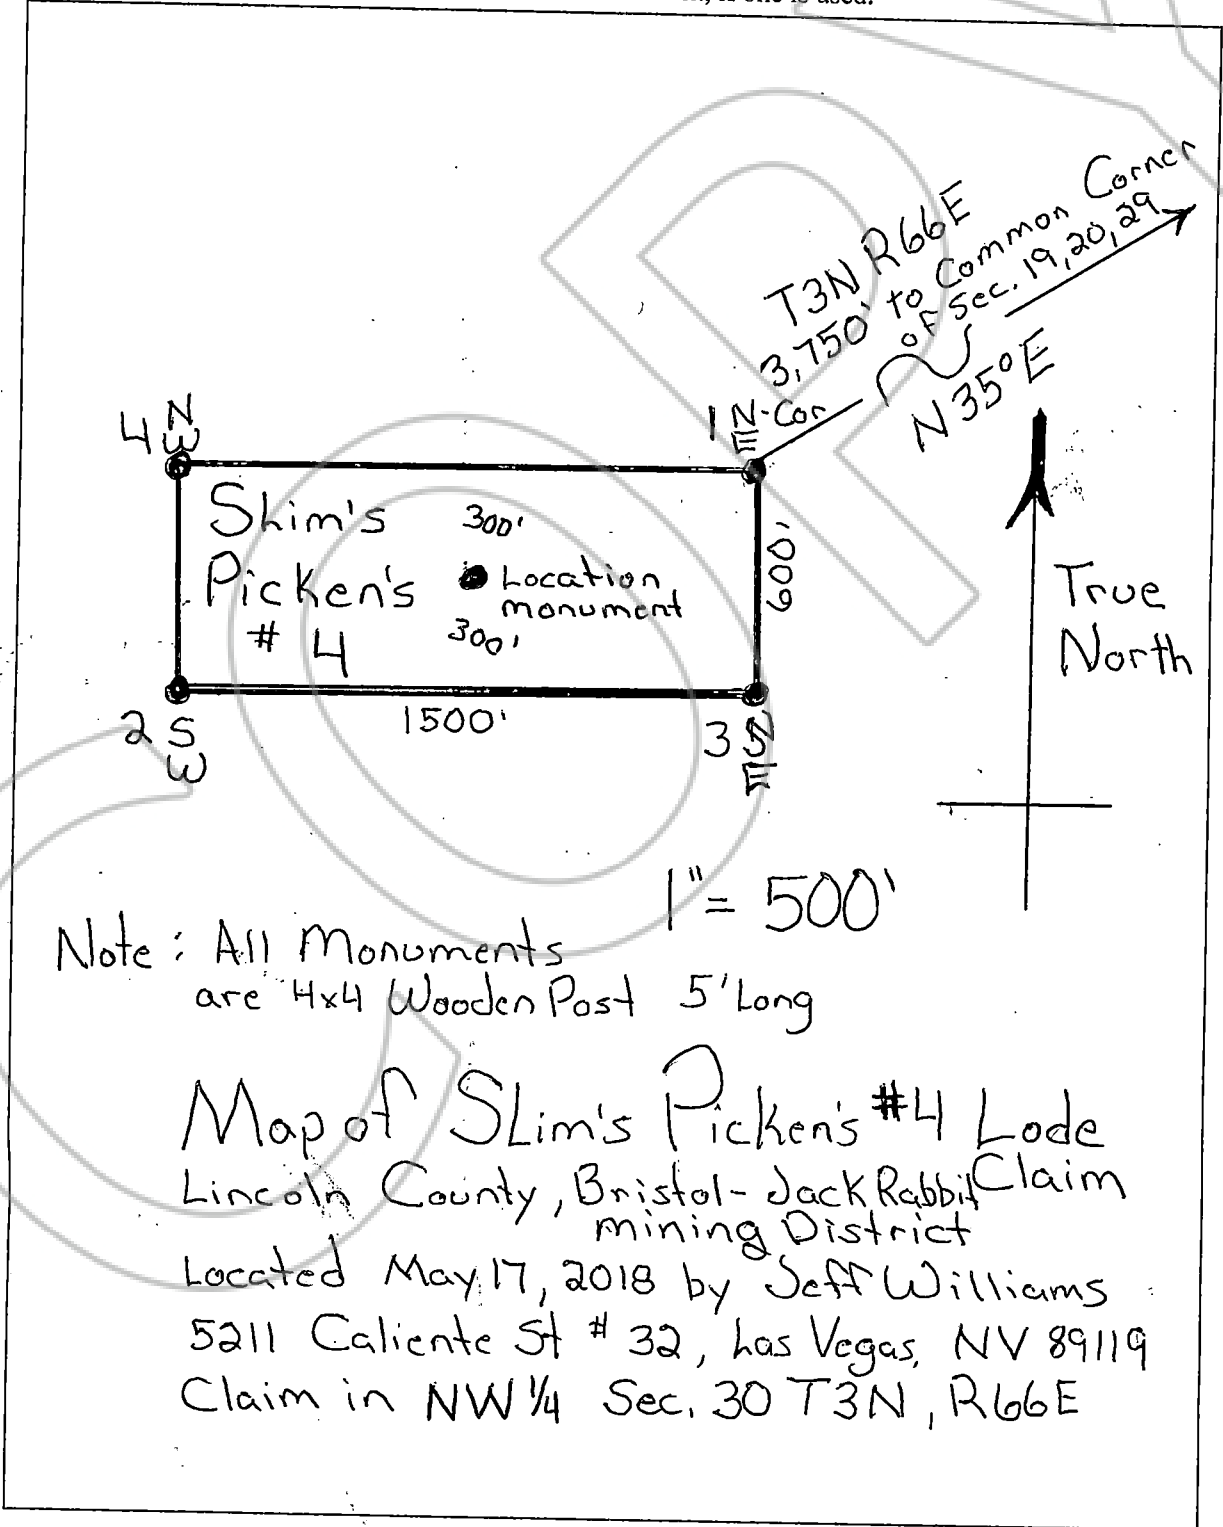 if one is used.
Corner
T3N R66E
3,750' to Common
of Sec. 19,20,29
N35°E
4 NW
1 NE-Cor
Slim's 300'
Picken's Location
monument
# 4 300'
600'
True
North
2 SW
1500'
3 SE
1" = 500'
Note: All Monuments
are 4x4 Wooden Post 5' Long
Map of SLim's Picken's #4 Lode
Claim
Lincoln County, Bristol-Jack Rabbit
mining District
Located May 17, 2018 by Jeff Williams
5211 Caliente St # 32, Las Vegas, NV 89119
Claim in NW 1/4 Sec. 30 T3N, R66E
COPY